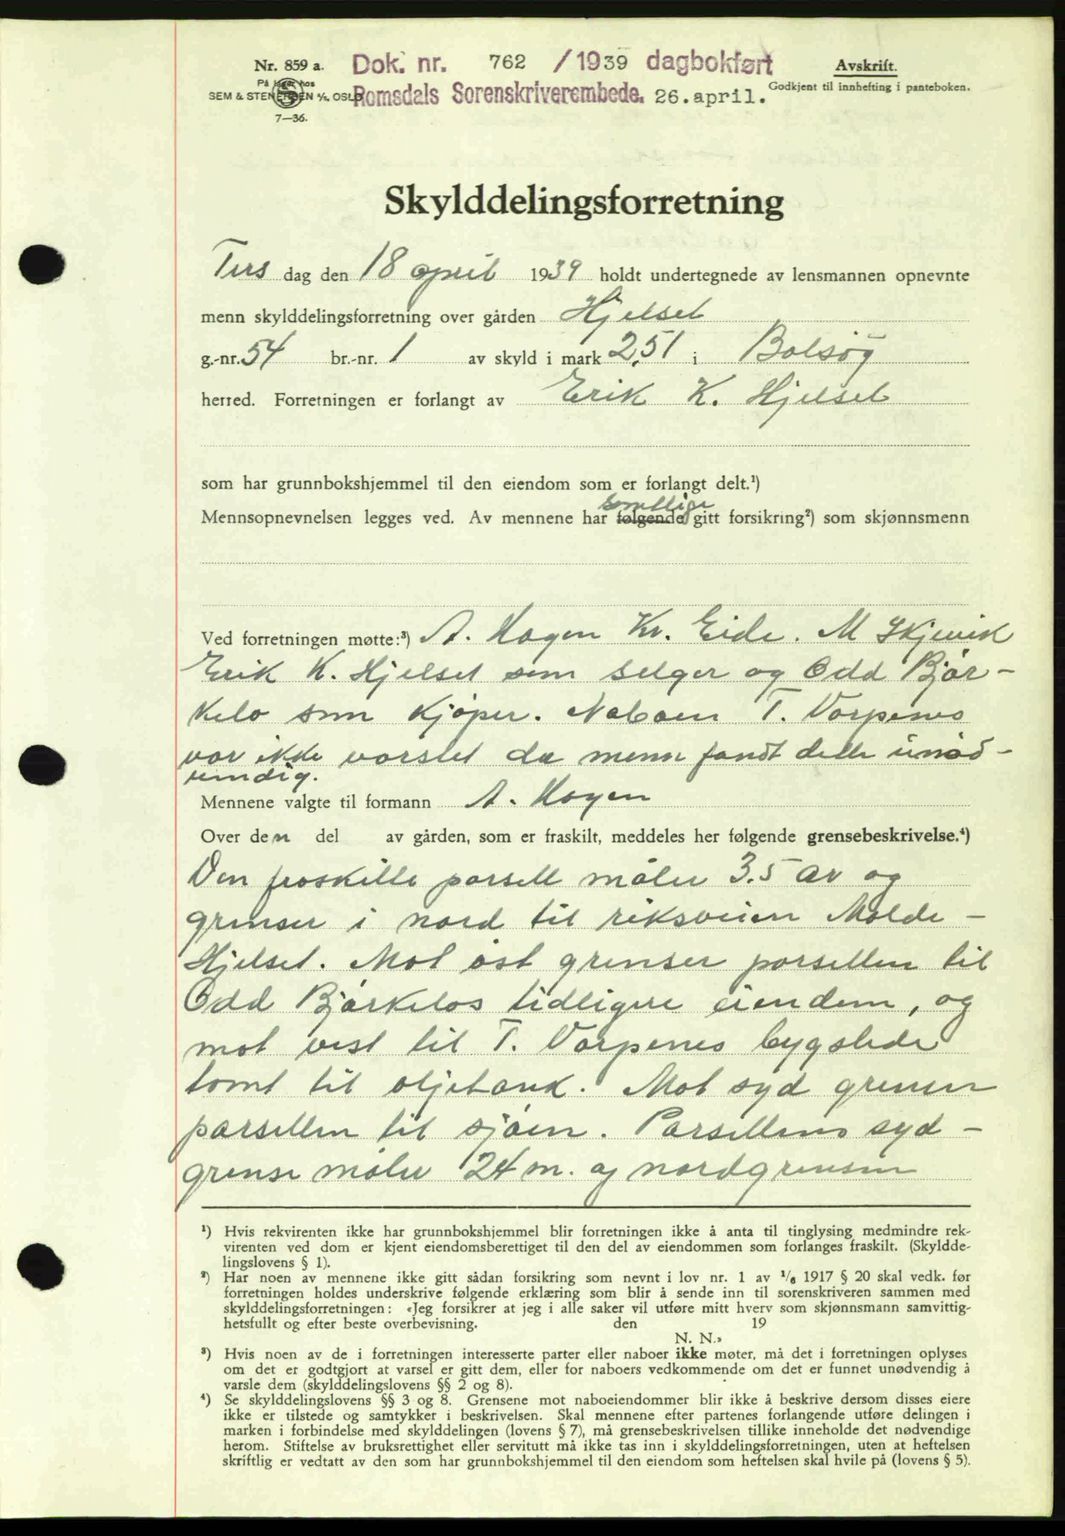 Nr. 859 a.
På lager hos
SEM & STENERSEN A/S, OSLO
7—36.
Dok. nr. 762 /1939 dagbokført
Romsdals Sorenskriverembede. 26.april.
Avskrift.
Godkjent til innhefting i panteboken.
Skylddelingsforretning
Tirs dag den 18 april 1939 holdt undertegnede av lensmannen opnevnte
menn skylddelingsforretning over gården Hjelset
g.-nr. 54 br.-nr. 1 av skyld i mark 2,51 i Bolsøy
herred. Forretningen er forlangt av Erik K. Hjelset
som har grunnbokshjemmel til den eiendom som er forlangt delt.¹)
samtlige
Mennsopnevnelsen legges ved. Av mennene har følgende gitt forsikring²) som skjønnsmenn
Ved forretningen møtte:³) A. Hagen Kr. Eide. M Skjevik
Erik K. Hjelset som selger og Odd Bjør-
kelo som kjøper. Naboen T. Varpenes
var ikke varslet da menn fandt dette unød-
vendig.
Mennene valgte til formann A. Hagen
Over den del av gården, som er fraskilt, meddeles her følgende grensebeskrivelse.⁴)
Den fraskille parsell måler 3.5 ar og
grenser i nord til riksveien Molde-
Hjelset. Mot øst grenser parsellen til
Odd Bjørkelos tidligere eiendom, og
mot vest til T. Varpenes bygslede
tomt til oljetank. Mot syd grenser
parsellen til sjøen. Parsellens syd-
grense måler 24 m. og nordgrensen
¹) Hvis rekvirenten ikke har grunnbokshjemmel blir forretningen ikke å anta til tinglysing medmindre rek-
virenten ved dom er kjent eiendomsberettiget til den del av eiendommen som forlanges fraskilt. (Skyldde-
lingslovens § 1).
²) Har noen av mennene ikke gitt sådan forsikring som nevnt i lov nr. 1 av ¹/₆ 1917 § 20 skal vedk. før
forretningen holdes underskrive følgende erklæring som blir å sende inn til sorenskriveren sammen med
skylddelingsforretningen: «Jeg forsikrer at jeg i alle saker vil utføre mitt hverv som skjønnsmann samvittig-
hetsfullt og efter beste overbevisning. den 19
N. N.»
³) Hvis noen av de i forretningen interesserte parter eller naboer ikke møter, må det i forretningen oplyses
om det er godtgjort at varsel er gitt dem, eller for naboers vedkommende om det er funnet unødvendig å
varsle dem (skylddelingslovens §§ 2 og 8).
⁴) Se skylddelingslovens §§ 3 og 8. Grensene mot naboeiendommer blir ikke å beskrive dersom disses eiere
ikke er tilstede og samtykker i beskrivelsen. Skal mennene efter partenes forlangende utføre delingen i
marken i forbindelse med skylddelingen (lovens § 7), må grensebeskrivelsen tillike inneholde det nødvendige
herom. Stiftelse av bruksrettighet eller servitutt må ikke tas inn i skylddelingsforretningen, uten at heftelsen
skriftlig er vedtatt av den som har grunnbokshjemmel til den eiendom som heftelsen skal hvile på (lovens § 5).